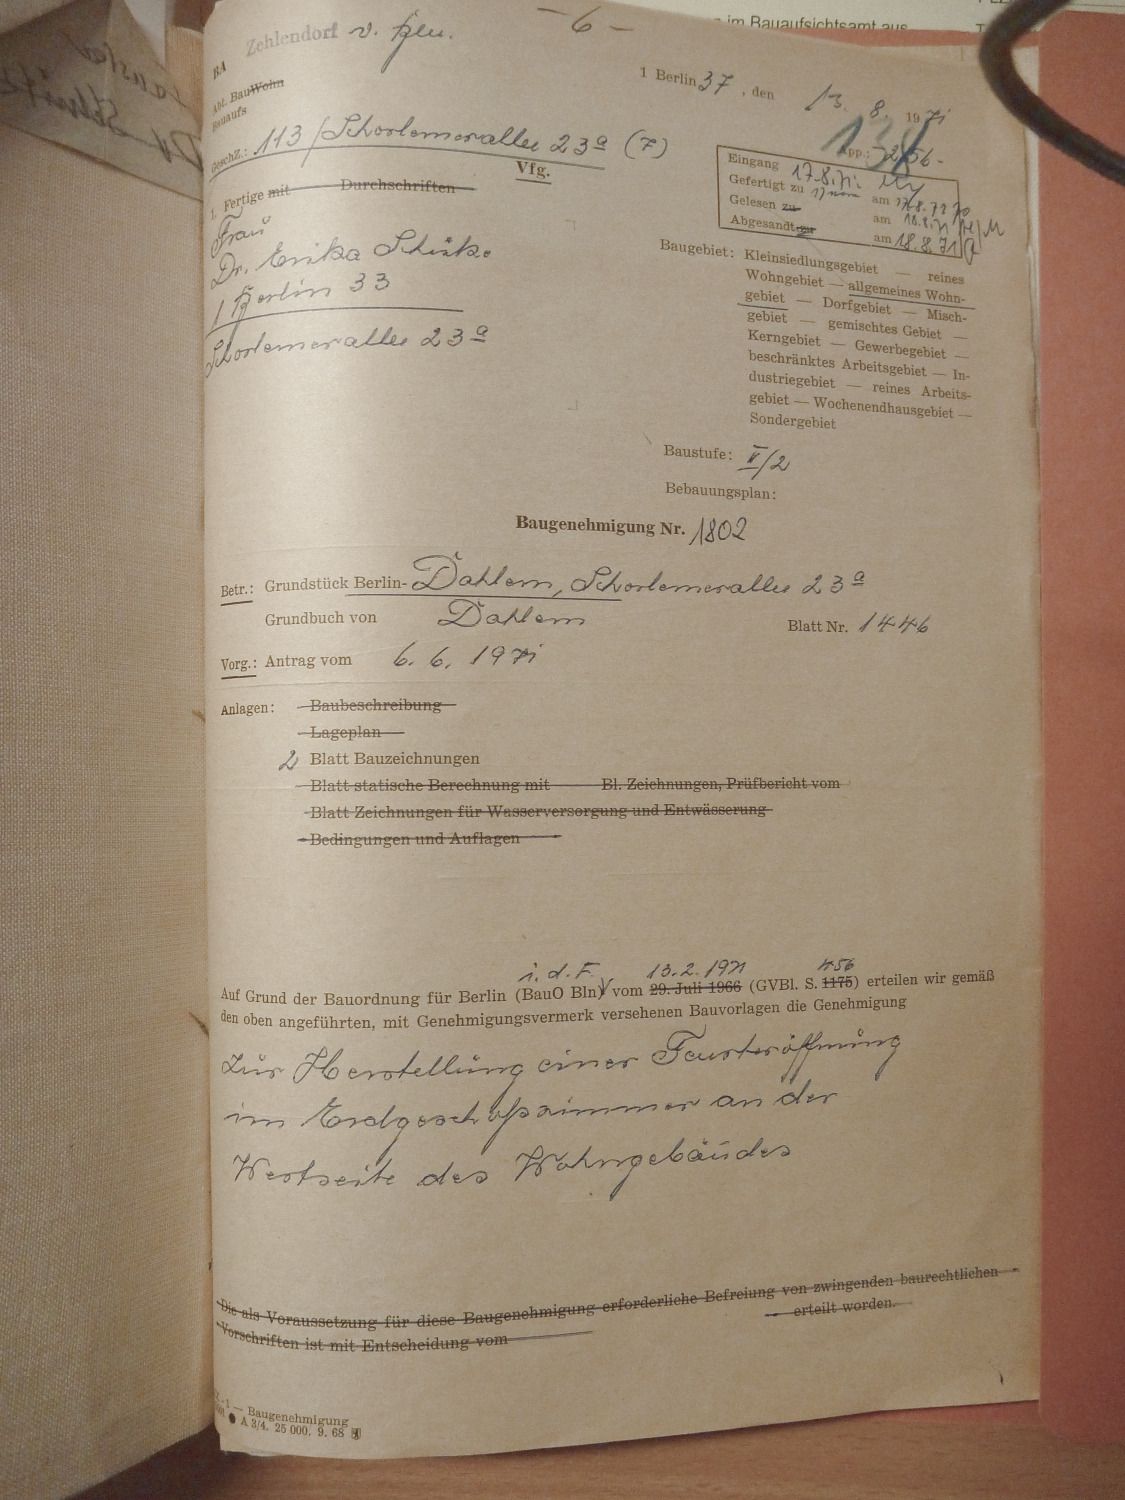 im Bauaufsichtsamt aus
– 6 –
BA Zehlendorf v. Bln.
Abt. BauWohn
Bauaufs
1 Berlin 37, den 13. 8. 1971
GeschZ.: 113 / Schorlemerallee 23a (7)
138
App.: 3256
Vfg.
Eingang 17.8.71
Gefertigt zu am 17.8.71
Gelesen zu am 18.8.71
Abgesandt zu am 18.8.71
1. Fertige mit Durchschriften
Frau
Dr. Erika Schütze
1 Berlin 33
Schorlemerallee 23a
Baugebiet: Kleinsiedlungsgebiet — reines
Wohngebiet — allgemeines Wohn-
gebiet — Dorfgebiet — Misch-
gebiet — gemischtes Gebiet —
Kerngebiet — Gewerbegebiet —
beschränktes Arbeitsgebiet — In-
dustriegebiet — reines Arbeits-
gebiet — Wochenendhausgebiet —
Sondergebiet
Baustufe: II/2
Bebauungsplan:
Baugenehmigung Nr. 1802
Betr.: Grundstück Berlin- Dahlem, Schorlemerallee 23a
Grundbuch von Dahlem Blatt Nr. 1446
Vorg.: Antrag vom 6. 6. 1971
Anlagen: Baubeschreibung
Lageplan
2 Blatt Bauzeichnungen
Blatt statische Berechnung mit Bl. Zeichnungen, Prüfbericht vom
Blatt Zeichnungen für Wasserversorgung und Entwässerung
Bedingungen und Auflagen
i. d. F. 13.2.1971 456
Auf Grund der Bauordnung für Berlin (BauO Bln) vom 29. Juli 1966 (GVBl. S. 1175) erteilen wir gemäß
den oben angeführten, mit Genehmigungsvermerk versehenen Bauvorlagen die Genehmigung
zur Herstellung einer Fensteröffnung
im Erdgeschoßzimmer an der
Westseite des Wohngebäudes
Die als Voraussetzung für diese Baugenehmigung erforderliche Befreiung von zwingenden baurechtlichen
Vorschriften ist mit Entscheidung vom erteilt worden.
1 — Baugenehmigung
A 3/4. 25 000. 9. 68